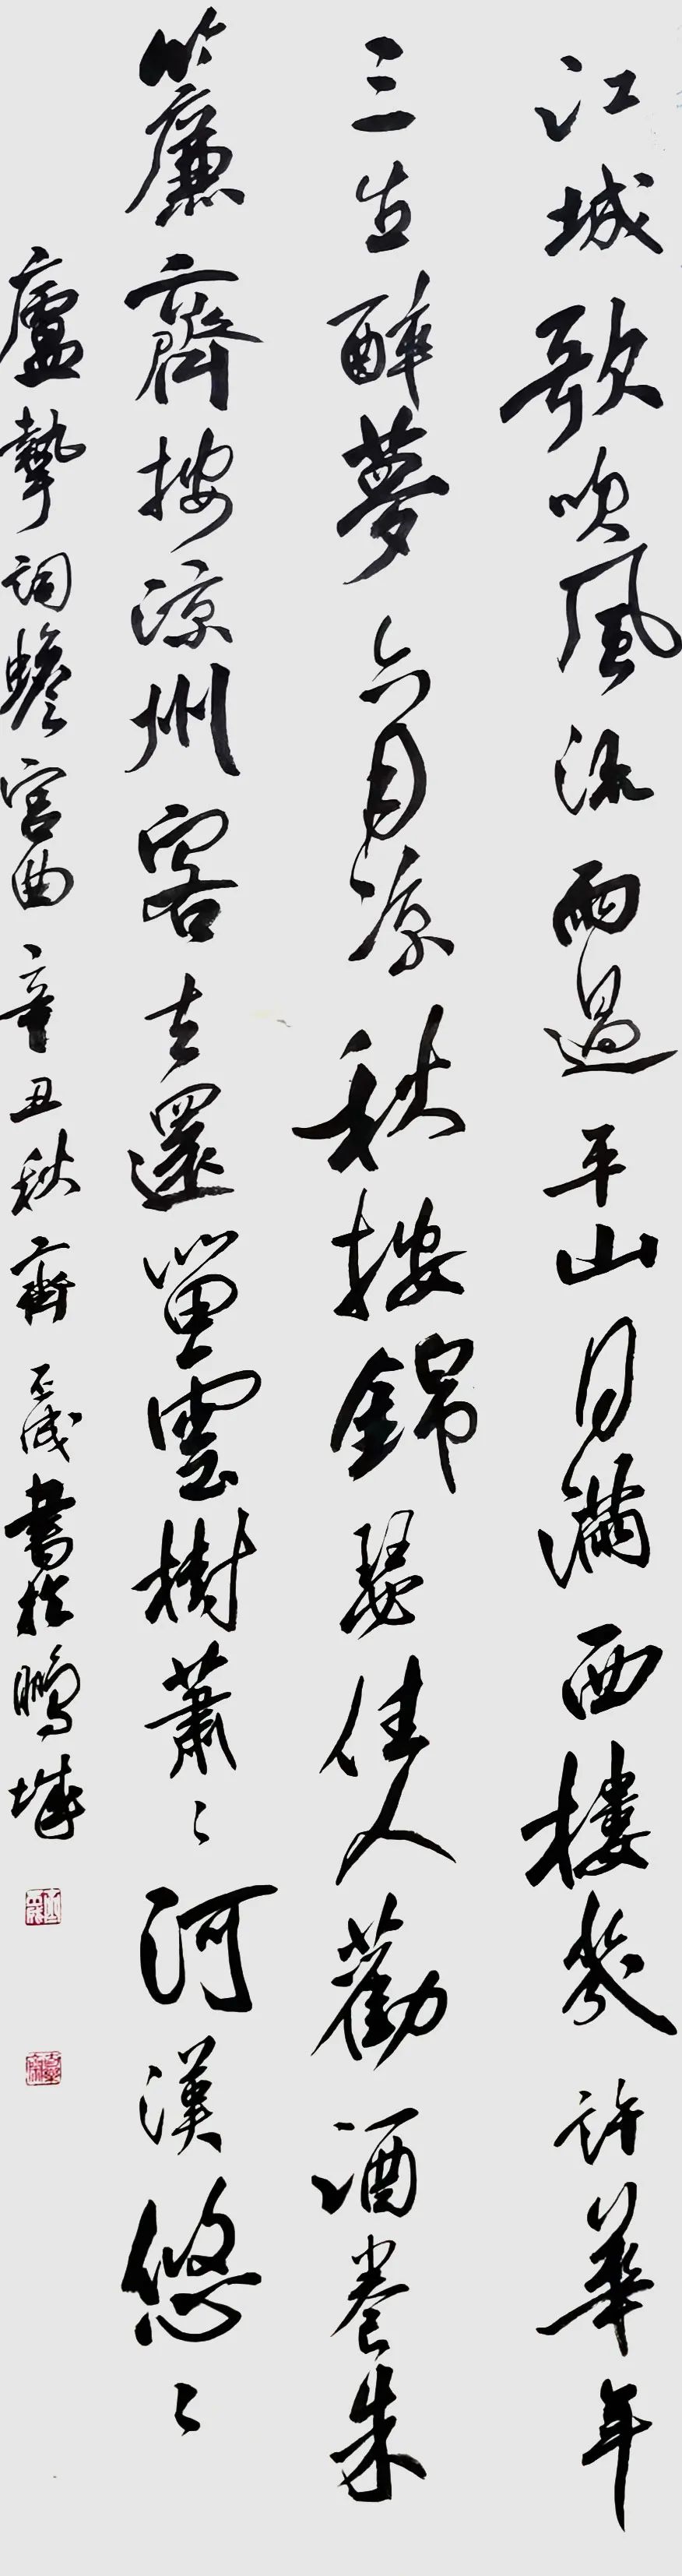 江城歌吹風流雨過平山月滿西樓幾許華年
三生醉夢六月涼秋按錦瑟佳人勸酒卷朱
簾齊按涼州客去還留雲樹蕭〻河漢悠〻
盧摯詞蟾宮曲辛丑秋齊成書於鵬城